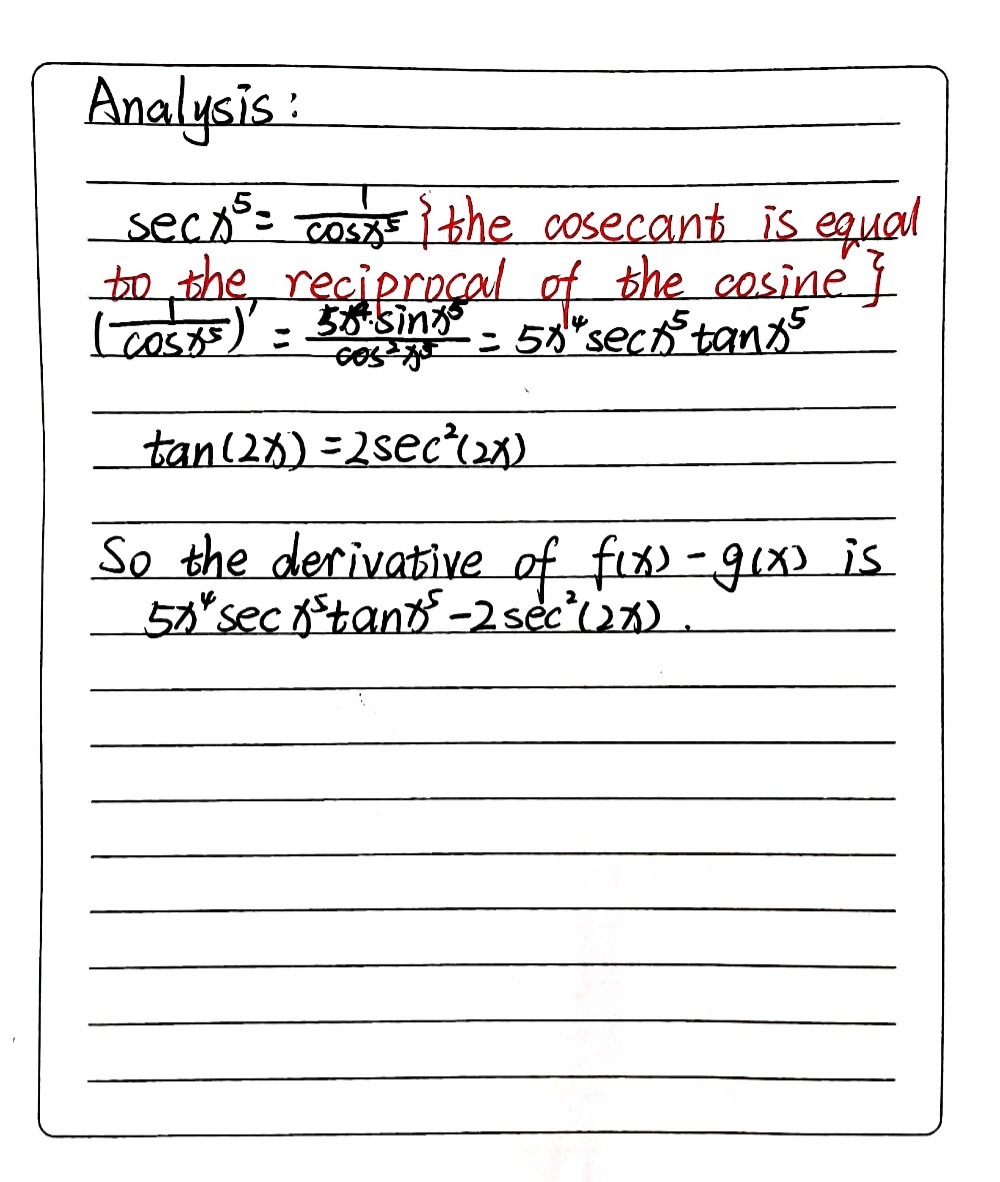 Analysis:
sec x⁵ = 1/cosx⁵ {the cosecant is equal
to the reciprocal of the cosine}
(1/cosx⁵)' = 5x⁴·sinx⁵/cos²x⁵ = 5x⁴secx⁵tanx⁵
tan(2x) = 2sec²(2x)
So the derivative of f(x) - g(x) is
5x⁴sec x⁵tanx⁵ - 2sec²(2x).